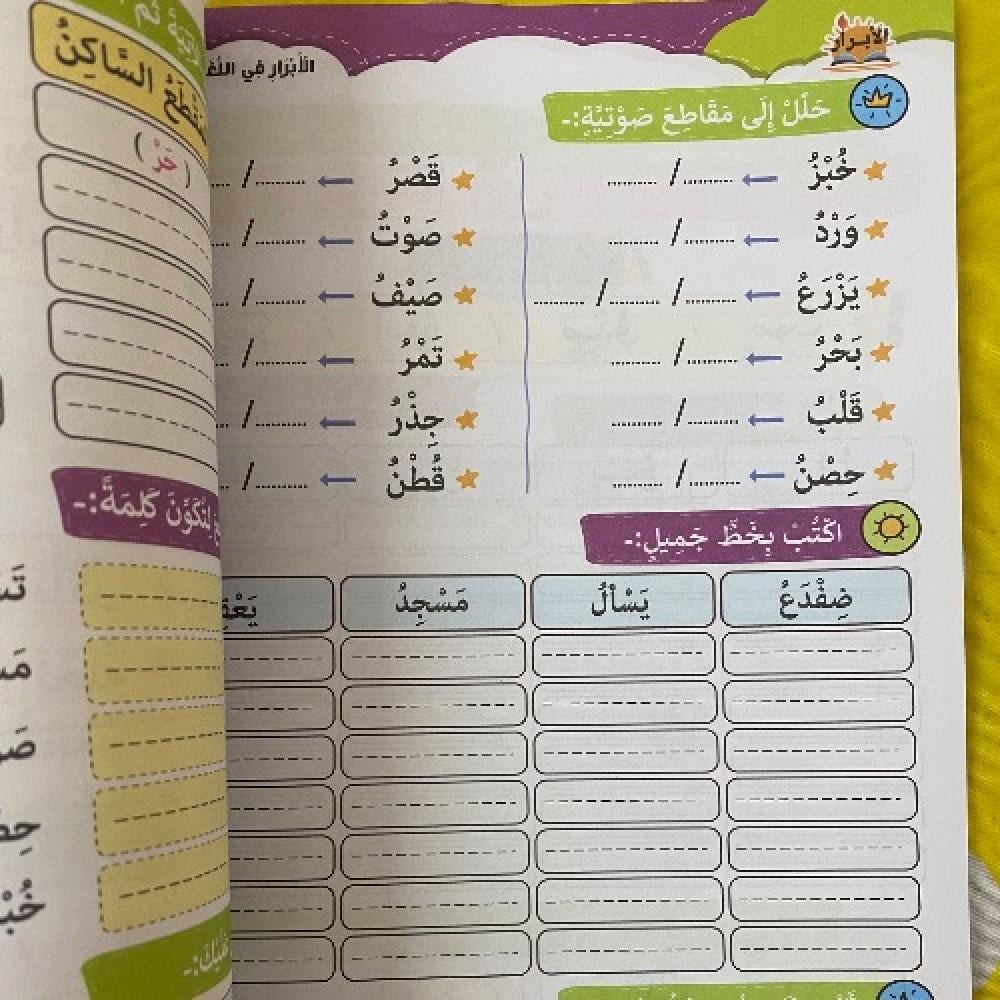 الأبرار
الأبرار في
حَلِّلْ إِلَى مَقَاطِعَ صَوْتِيَّةٍ:-
خُبْزُ ← ......... / .........
وَرْدٌ ← ......... / .........
يَزْرَعُ ← ......... / ......... / .........
بَحْرُ ← ......... / .........
قَلْبُ ← ......... / .........
حِصْنُ ← ......... / .........
قَصْرُ ← ......... /
صَوْتُ ← ......... /
صَيْفُ ← ......... /
تَمْرُ ← ......... /
جِذْرُ ← ......... /
قُطْنُ ← ......... /
اكْتُبْ بِخَطٍّ جَمِيلٍ:-
ضِفْدَعُ يَسْأَلُ مَسْجِدُ
السَّاكِنُ
( حَرْ )
لِتُكَوِّنَ كَلِمَةً:-